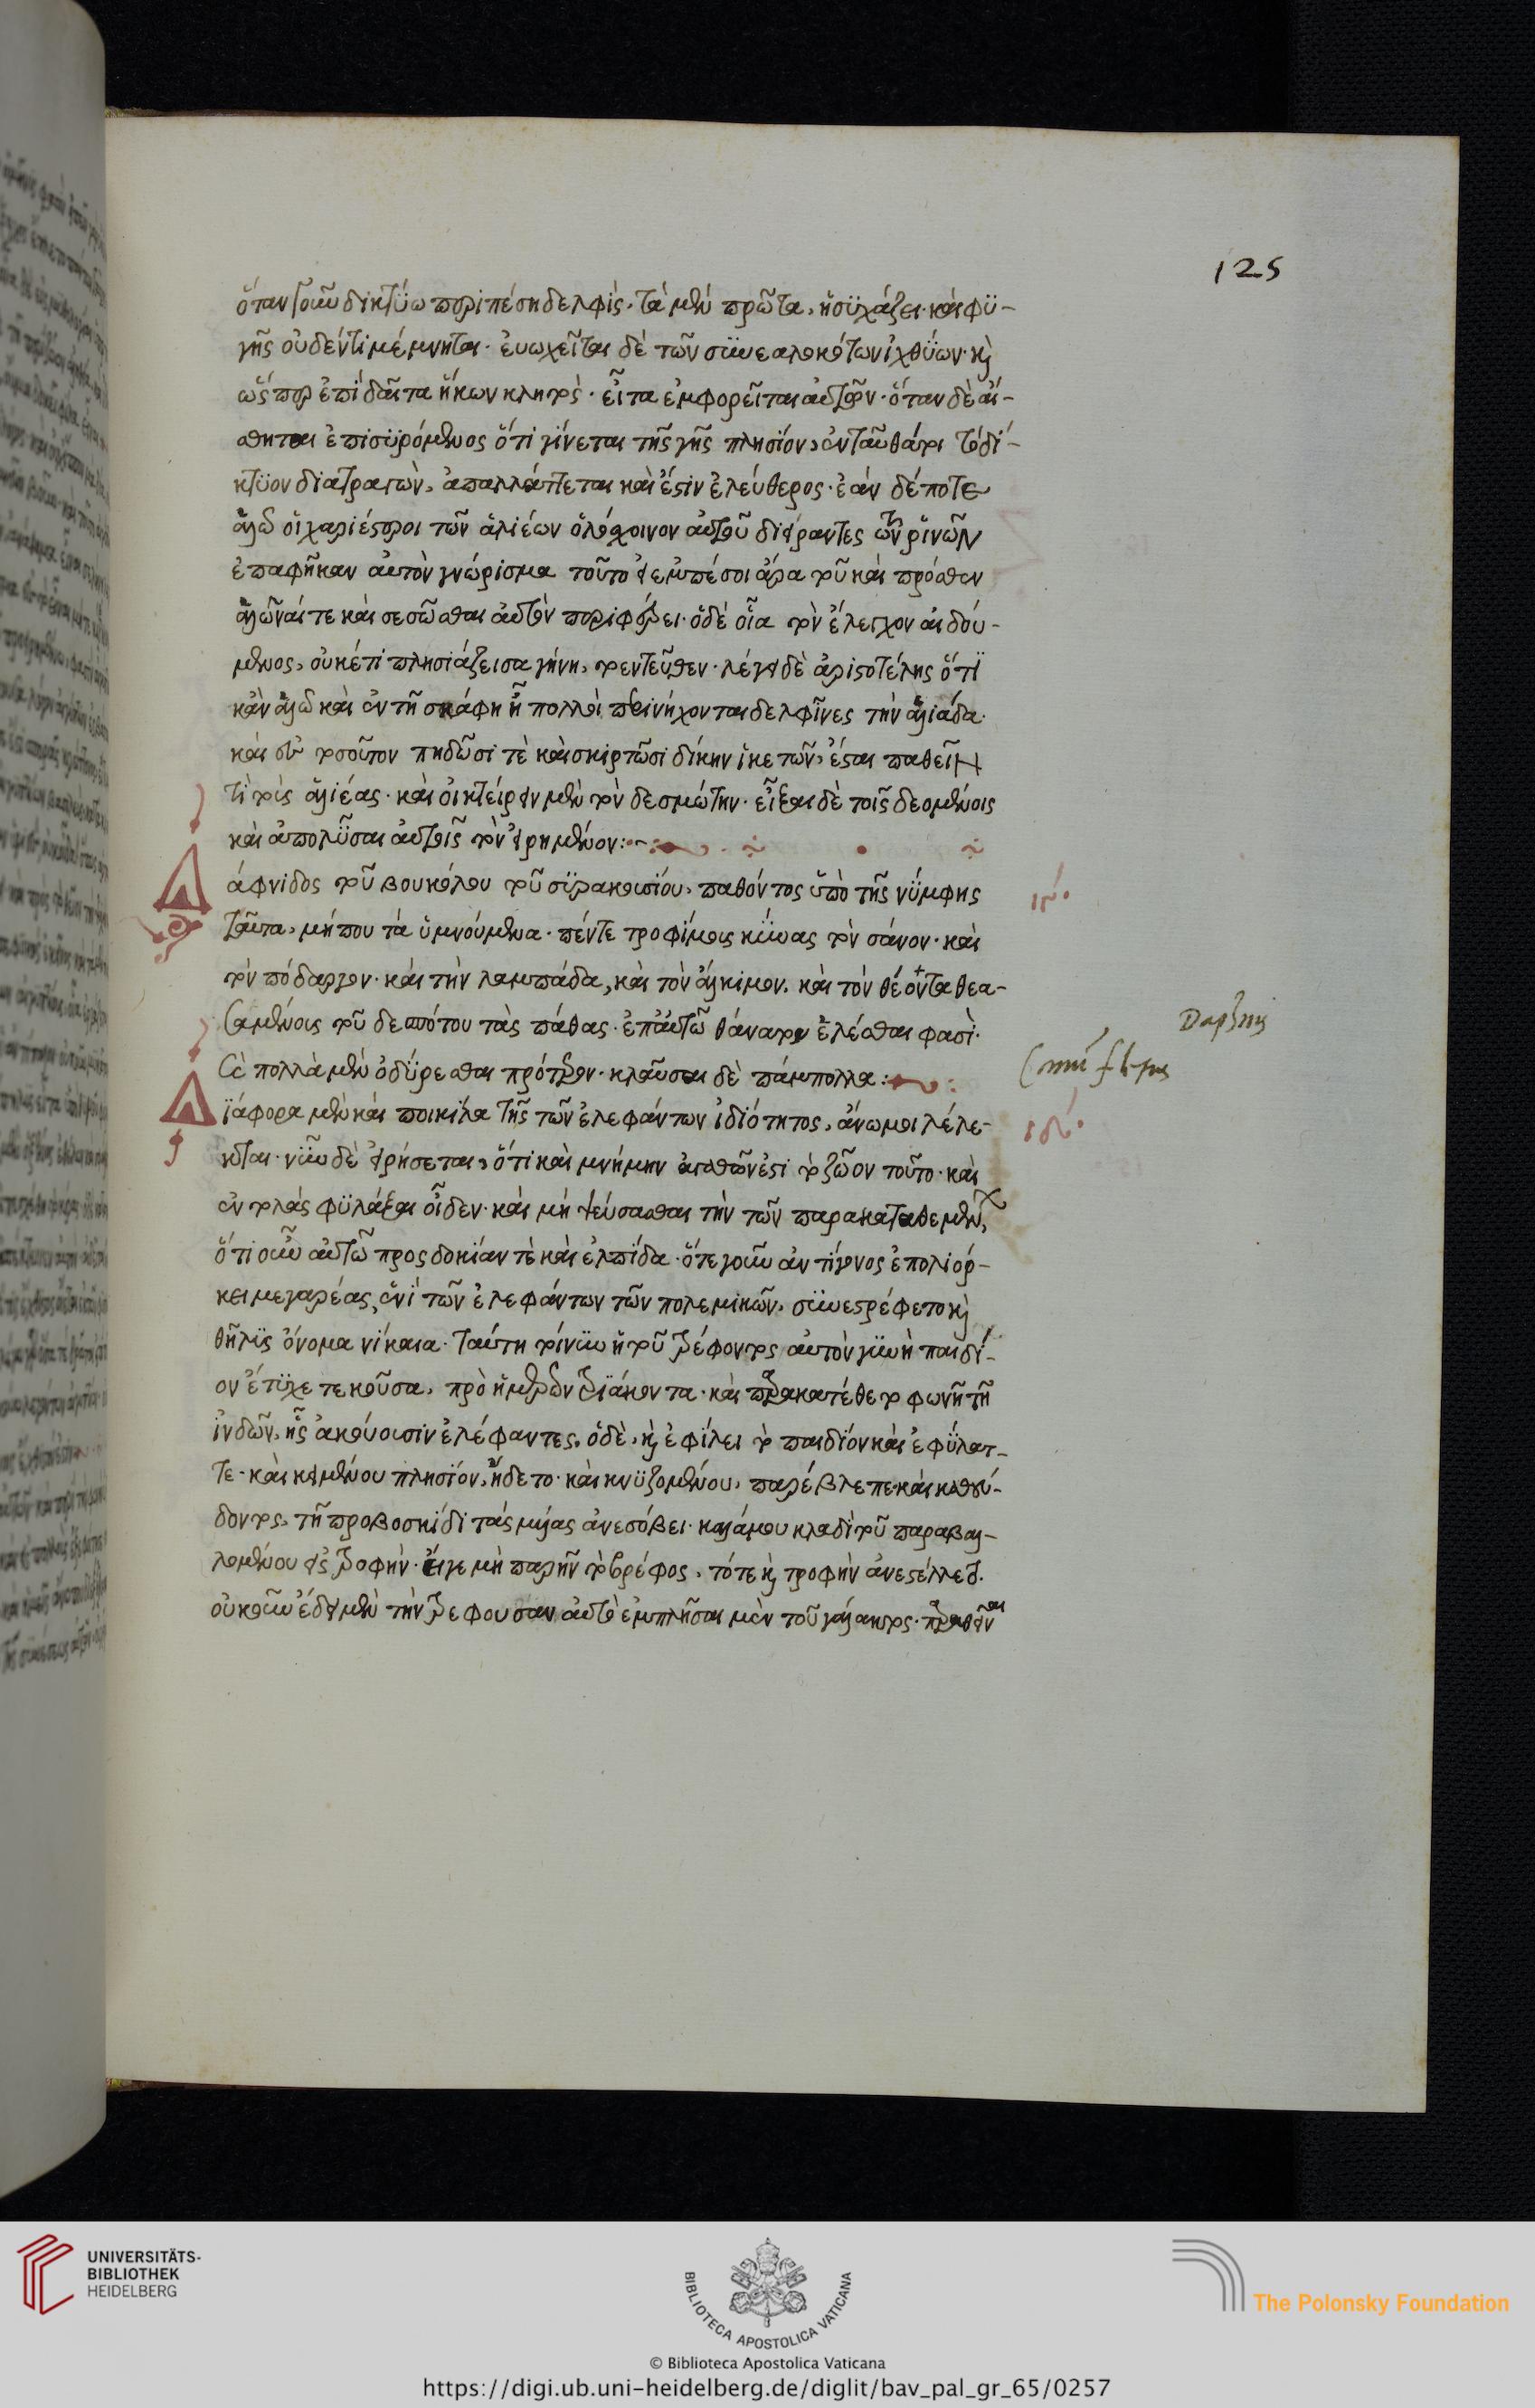 125
ὅταν γοῦν δικτύω περιπέση δελφὶς· τὰ μὲν πρῶτα, ἡσυχάζει· καὶ φυ-
γῆς οὐδέν τι μέμνηται· ἐυωχεῖται δὲ τῶν συνεαλοκότων ἰχθύων· κὶ
ὥσπερ ἐπὶ δαῖτα ἥκων κλητὸς· εἶτα ἐμφορεῖται αὐτῶν· ὅταν δὲ αἴ-
σθηται ἐπισυρόμενος ὅτι γίνεται τῆς γῆς πλησίον, ἐνταῦθά τι τὸ δί-
κτυον διατραγὼν, ἀπαλλάττεται καὶ ἔστιν ἐλεύθερος· ἐὰν δέ ποτε
ἁλῶ οἱ χαριέστεροι τῶν ἁλιέων ὁλόσχοινον αὐτοῦ διείραντες τῶν ῥινῶν
ἐπαφῆκαν αὐτὸν γνώρισμα τοῦτο εἰ ἐμπέσοι ἄρα τοῦ καὶ πρόσθεν
ἁλῶναί τε καὶ σεσῶσθαι αὐτὸν περιφέρει· ὁ δὲ οἷα τὸν ἔλεγχον αἰδού-
μενος, οὐκέτι πλησιάζει σαγήνη, τοεντεῦθεν· λέγει δὲ ἀριστοτέλης ὅτι
κἂν ἁλῶ καὶ ἐν τῆ σκάφη ᾖ πολλοὶ περινήχονται δελφῖνες τὴν ἁλιάδα·
καὶ ἐς τοσοῦτον πηδῶσι τὲ καὶ σκιρτῶσι δίκην ἱκετῶν, ἔσται παθεῖν
τι τοὺς ἁλιέας· καὶ οἰκτείρειν μὲν τὸν δεσμώτην· εἶξαι δὲ τοῖς δεομένοις
καὶ ἀπολῦσαι αὐτοῖς τὸν εἰρημένον:
Δάφνιδος τοῦ βουκόλου τοῦ συρακουσίου, παθόντος ὑπὸ τῆς νύμφης
ταῦτα, μήπου τά ὑμνούμενα· πέντε τροφίμοις κύνας τὸν σάνον· καὶ
τὸν πόδαργον· καὶ τὴν λαμπάδα, καὶ τὸν ἄλκιμον. καὶ τὸν θέοντα θεα-
σαμένοις τοῦ δεσπότου τὰς πάθας· ἐπ' αὐτῶ θάνατον ἑλέσθαι φασὶ·
σὲ πολλὰ μὲν ὀδύρεσθαι πρότερον· κλαῦσαι δὲ πάμπολλα:
Daphnis
ιγ΄
Διάφορα μὲν καὶ ποικίλα τῆς τῶν ἐλεφάντων ἰδιότητος, ἄνωμοι λέλε-
ιδ΄
κται· νῦν δὲ εἰρήσεται, ὅτι καὶ μνήμην ἀγαθῶν ἐστι τὸ ζῶον τοῦτο· καὶ
ἐντολὰς φυλάξαι οἶδεν· καὶ μὴ ψεύσασθαι τὴν τῶν παρακαταθεμένων
ὅτι οὖν αὐτῶ προσδοκίαν τὲ καὶ ἐλπίδα· ὅτε γοῦν ἀντίγονος ἐπολιόρ-
κει μεγαρέας, ἑνὶ τῶν ἐλεφάντων τῶν πολεμικῶν, συνεστρέφετο κὶ
θῆλυς ὄνομα νίκαια· ταύτη τοίνυν ἡ τοῦ τρέφοντος αὐτὸν γυνὴ παιδί-
ον ἔτυχε τεκοῦσα, πρὸ ἡμερῶν τριάκοντα· καὶ παρακατέθετο φωνῆ τῆ
ἰνδῶν, ἧς ἀκούουσιν ἐλέφαντες, ὁ δὲ, κὶ ἐφίλει τὸ παιδίον καὶ ἐφύλατ-
τε· καὶ κειμένου πλησίον, ἥδετο· καὶ κνυζομένου, παρέβλεπε· καὶ καθεύ-
δοντος, τῆ προβοσκίδι τὰς μυίας ἀνεσόβει· καλάμου κλαδὶ τοῦ παραβαλ-
λομένου εἰς τροφὴν· εἴγε μὴ παρῆν τὸ βρέφος, τότε κὶ τροφὴν ἀνεστέλλετο.
οὐκοῦν ἔδει μὲν τὴν τρέφουσαν αὐτὸ ἐμπλῆσαι μὲν τοῦ γάλακτος· παραθεῖναι
UNIVERSITÄTS-
BIBLIOTHEK
HEIDELBERG
BIBLIOTECA APOSTOLICA VATICANA
The Polonsky Foundation
© Biblioteca Apostolica Vaticana
https://digi.ub.uni-heidelberg.de/diglit/bav_pal_gr_65/0257